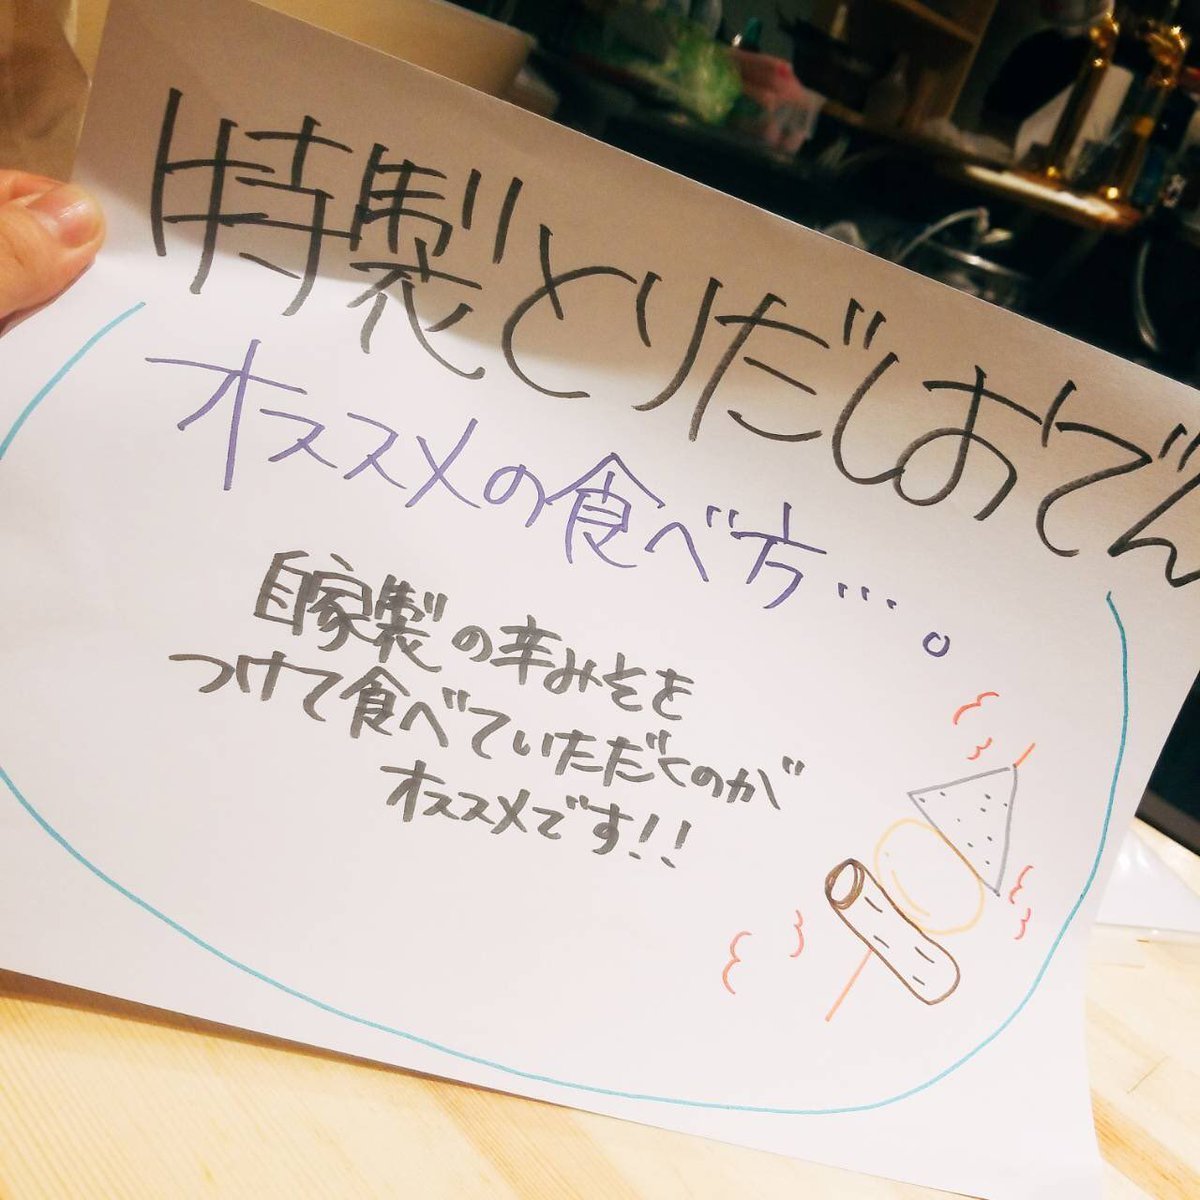 特製とりだしおでん
オススメの食べ方…。
自家製の辛みそを
つけて食べていただくのが
オススメです!!